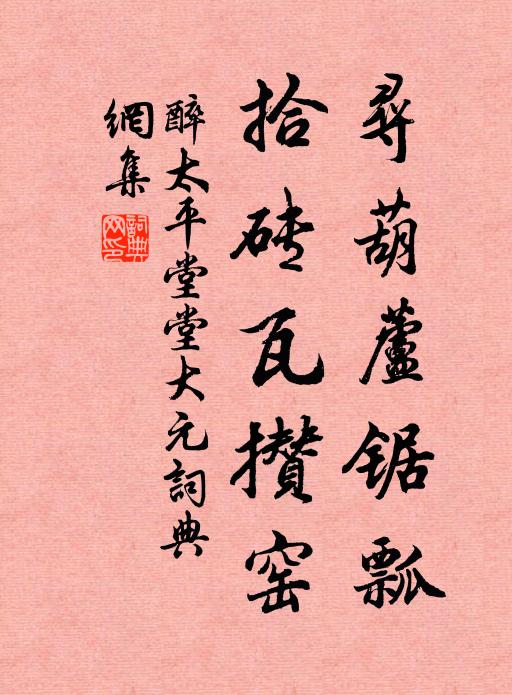 尋葫蘆鋸瓢
拾砖瓦攅窑
醉太平堂堂大元詞典
網集
詞典网印